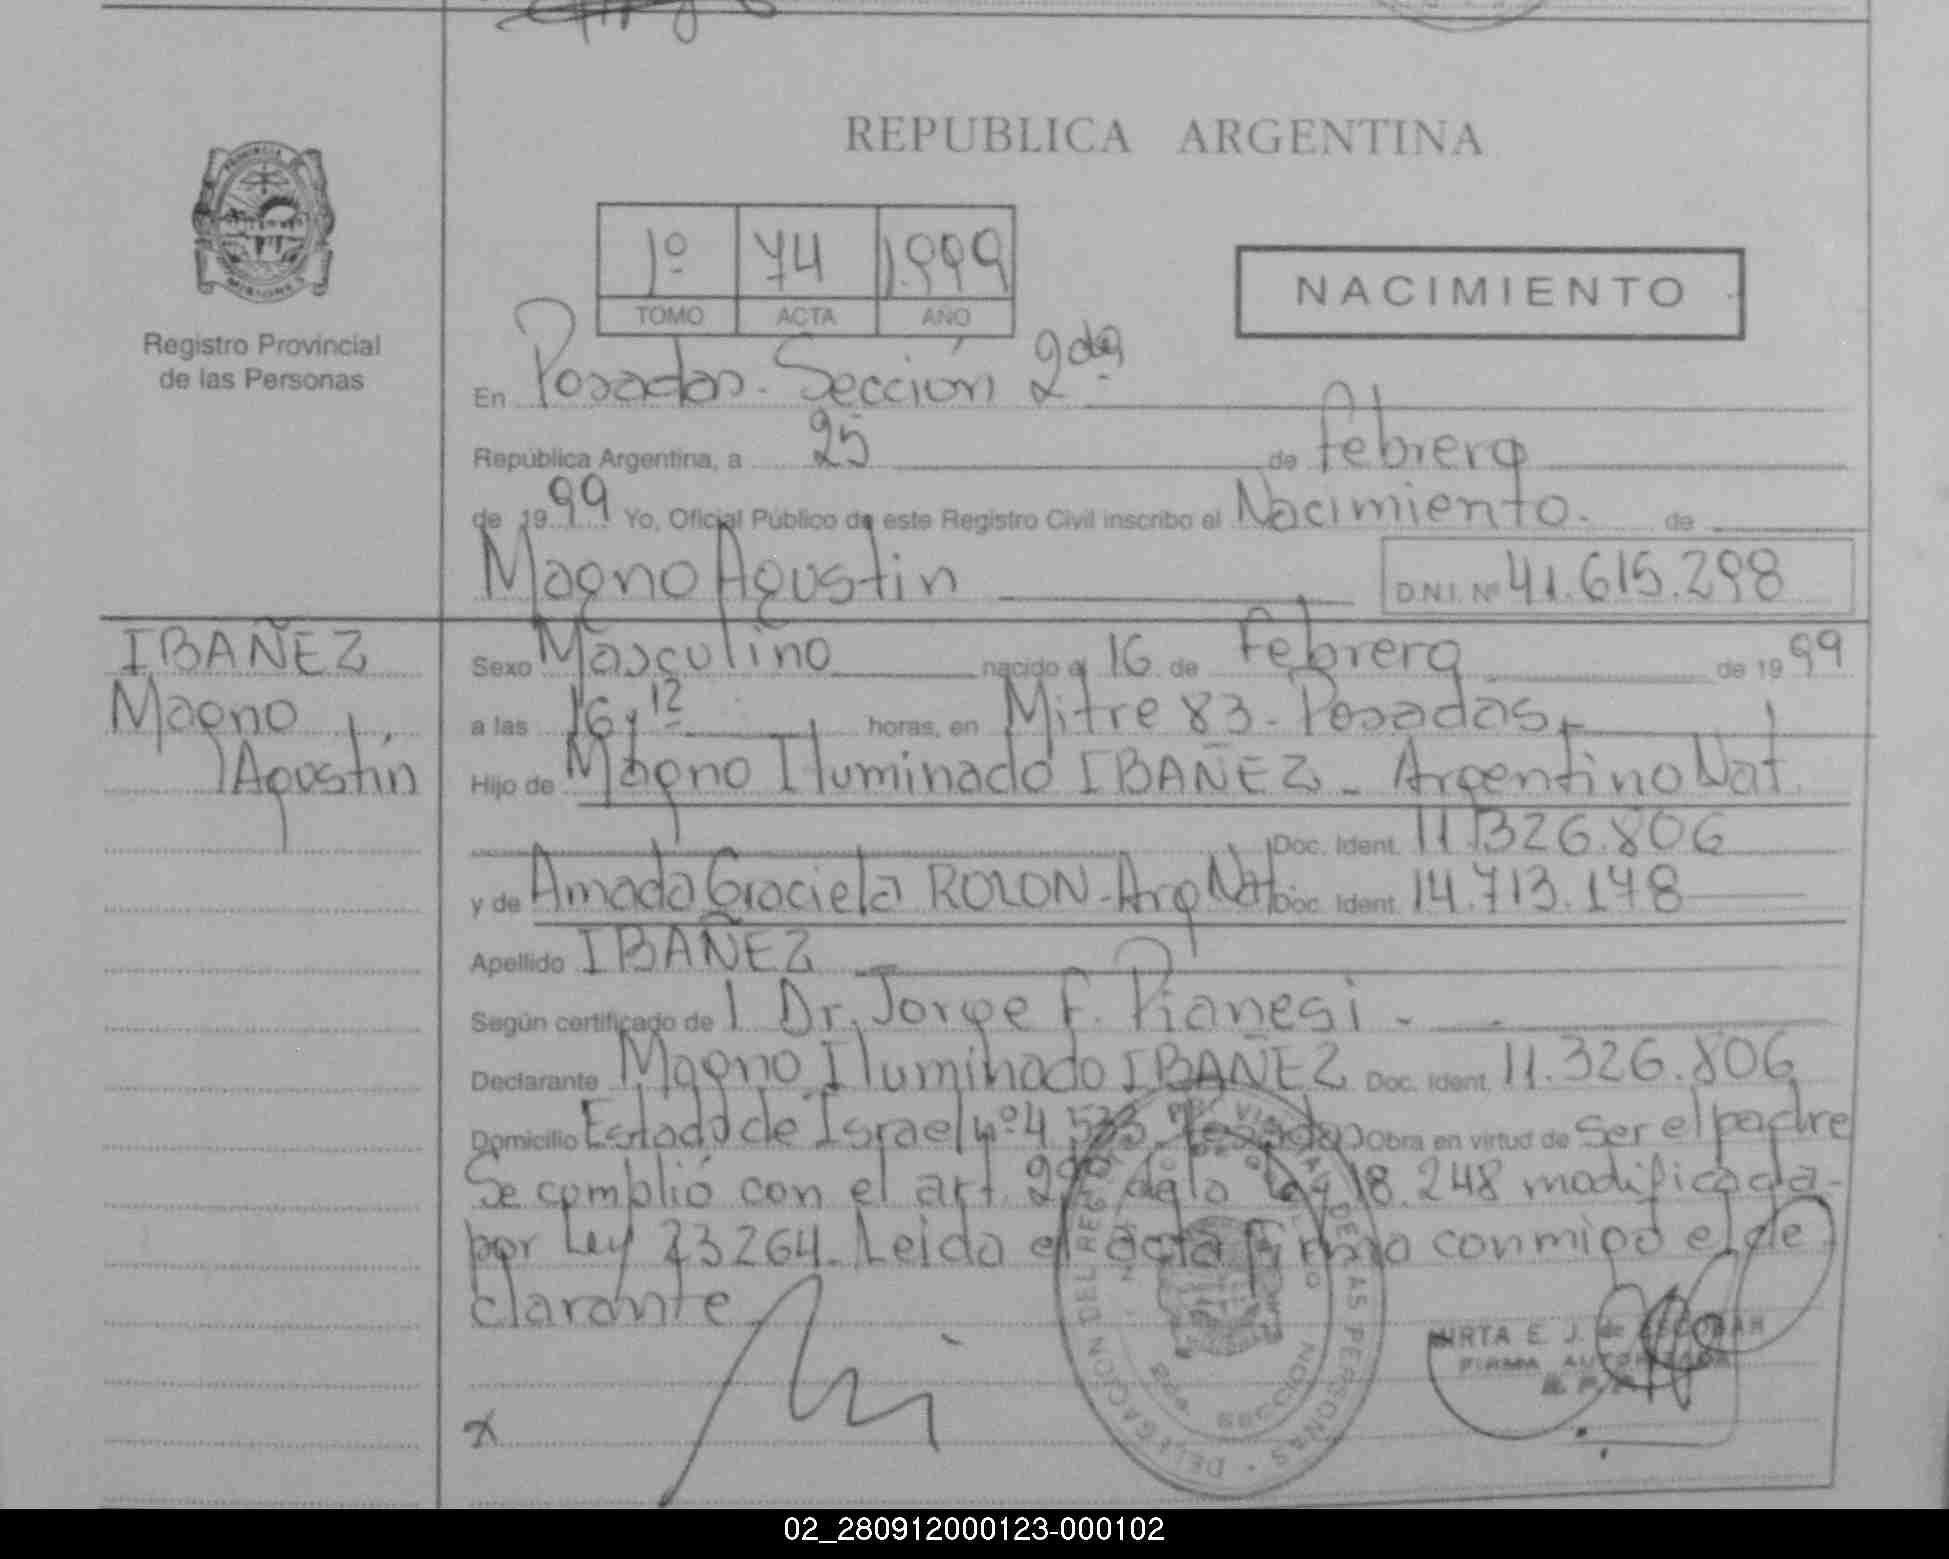 REPUBLICA ARGENTINA
PROVINCIA
MISIONES
Registro Provincial
de las Personas
1º 74 1.999
TOMO ACTA AÑO
NACIMIENTO
En Posadas. Sección 2da
República Argentina, a 25 de febrero
de 1999 Yo, Oficial Público de este Registro Civil inscribo el Nacimiento. de
Magno Agustin
D.N.I. Nº 41.615.298
IBAÑEZ
Magno
Agustín
Sexo Masculino nacido el 16 de Febrero de 1999
a las 16 y 12 horas, en Mitre 83 - Posadas
Hijo de Magno Iluminado IBAÑEZ - Argentino Nat.
Doc. Ident. 11.326.806
y de Amada Graciela ROLON - Arg Nat. Doc. Ident. 14.713.178
Apellido IBAÑEZ
Según certificado de l Dr. Jorge F. Pianesi -
Declarante Magno Iluminado IBAÑEZ Doc. Ident. 11.326.806
Domicilio Estado de Israel nº 4.533 Posadas Obra en virtud de ser el padre
Se complió con el art. de la Ley 18.248 modificada
por Ley 23264. Leida el acta firma conmigo el de
clarante
x
DELEGACION DEL REGISTRO PROVINCIAL DE LAS PERSONAS
SECCION
MIRTA E. J. de ESCOBAR
FIRMA AUTORIZADA
02_280912000123-000102